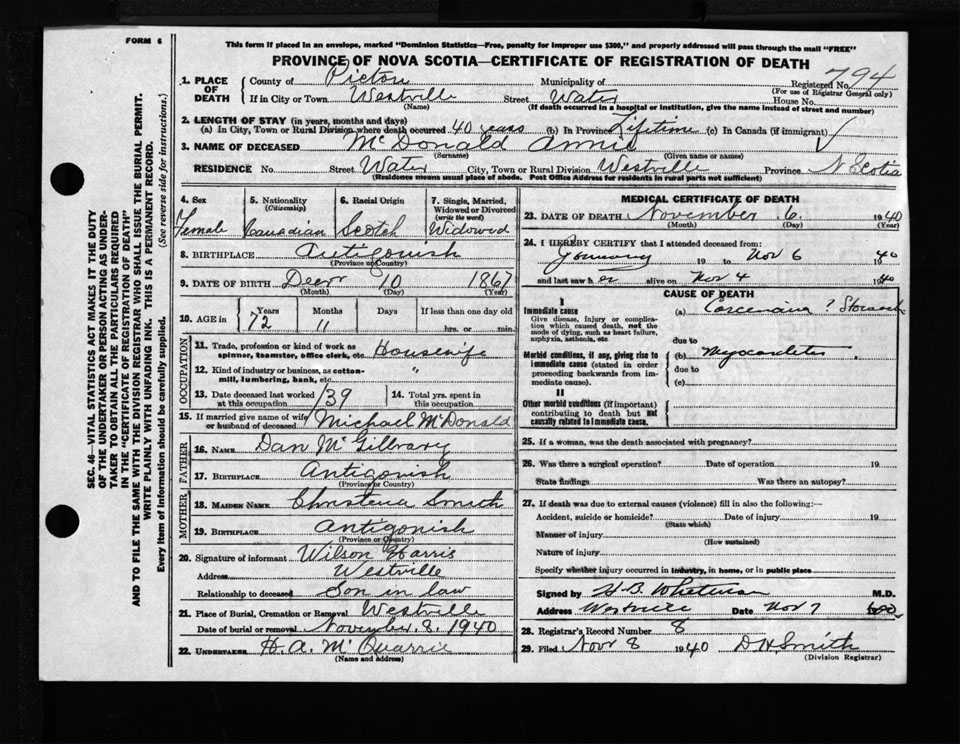 FORM 6
This form if placed in an envelope, marked "Dominion Statistics—Free, penalty for improper use $300," and properly addressed will pass through the mail "FREE"
PROVINCE OF NOVA SCOTIA—CERTIFICATE OF REGISTRATION OF DEATH
SEC. 46—VITAL STATISTICS ACT MAKES IT THE DUTY
OF THE UNDERTAKER OR PERSON ACTING AS UNDER-
TAKER TO OBTAIN ALL THE PARTICULARS REQUIRED
IN THE "CERTIFICATE OF REGISTRATION OF DEATH"
AND TO FILE THE SAME WITH THE DIVISION REGISTRAR WHO SHALL ISSUE THE BURIAL PERMIT.
WRITE PLAINLY WITH UNFADING INK. THIS IS A PERMANENT RECORD.
Every item of information should be carefully supplied. (See reverse side for instructions.)
1. PLACE OF DEATH
County of Pictou Municipality of Registered No. 794
(For use of Registrar General only)
If in City or Town Westville Street Water House No.
(Name) (If death occurred in a hospital or institution, give the name instead of street and number)
2. LENGTH OF STAY (in years, months and days)
(a) In City, Town or Rural Division where death occurred 40 years (b) In Province Lifetime (c) In Canada (if immigrant) √
3. NAME OF DECEASED McDonald Annie
(Surname) (Given name or names)
RESIDENCE No. Street Water City, Town or Rural Division Westville Province N Scotia
(Residence means usual place of abode. Post Office Address for residents in rural parts not sufficient)
4. Sex Female
5. Nationality (Citizenship) Canadian
6. Racial Origin Scotch
7. Single, Married, Widowed or Divorced (write the word) Widowed
8. BIRTHPLACE Antigonish
(Province or Country)
9. DATE OF BIRTH Decr 10 1867
(Month) (Day) (Year)
10. AGE in Years 72 Months 11 Days If less than one day old hrs. or min.
OCCUPATION
11. Trade, profession or kind of work as spinner, teamster, office clerk, etc. Housewife
12. Kind of industry or business, as cotton-mill, lumbering, bank, etc. "
13. Date deceased last worked at this occupation 139
14. Total yrs. spent in this occupation
15. If married give name of wife or husband of deceased Michael McDonald
FATHER
16. NAME Dan McGilvary
17. BIRTHPLACE Antigonish
(Province or Country)
MOTHER
18. MAIDEN NAME Christena Smith
19. BIRTHPLACE Antigonish
(Province or Country)
20. Signature of informant Wilson Harris
Address Westville
Relationship to deceased Son in law
21. Place of Burial, Cremation or Removal Westville
Date of burial or removal November 8. 1940
22. UNDERTAKER H. A. McQuarrie
(Name and address)
MEDICAL CERTIFICATE OF DEATH
23. DATE OF DEATH November 6. 1940
(Month) (Day) (Year)
24. I HEREBY CERTIFY that I attended deceased from:
January 19 to Nov 6 1940
and last saw her alive on Nov 4 1940
CAUSE OF DEATH
I
Immediate cause
Give disease, injury or complication which caused death, not the mode of dying, such as heart failure, asphyxia, asthenia, etc.
(a) Carcenoma ? Stomach
due to
Morbid conditions, if any, giving rise to immediate cause (stated in order proceeding backwards from immediate cause).
(b) Myocardetes
due to
(c)
II
Other morbid conditions (if important) contributing to death but not causally related to immediate cause.
25. If a woman, was the death associated with pregnancy?
26. Was there a surgical operation? Date of operation 19
State findings Was there an autopsy?
27. If death was due to external causes (violence) fill in also the following:—
Accident, suicide or homicide? Date of injury 19
(State which)
Manner of injury
(How sustained)
Nature of injury
Specify whether injury occurred in industry, in home, or in public place
Signed by H. B. Whitman M.D.
Address Westville Date Nov 7
28. Registrar's Record Number 8
29. Filed Novr 8 1940 D H Smith
(Division Registrar)